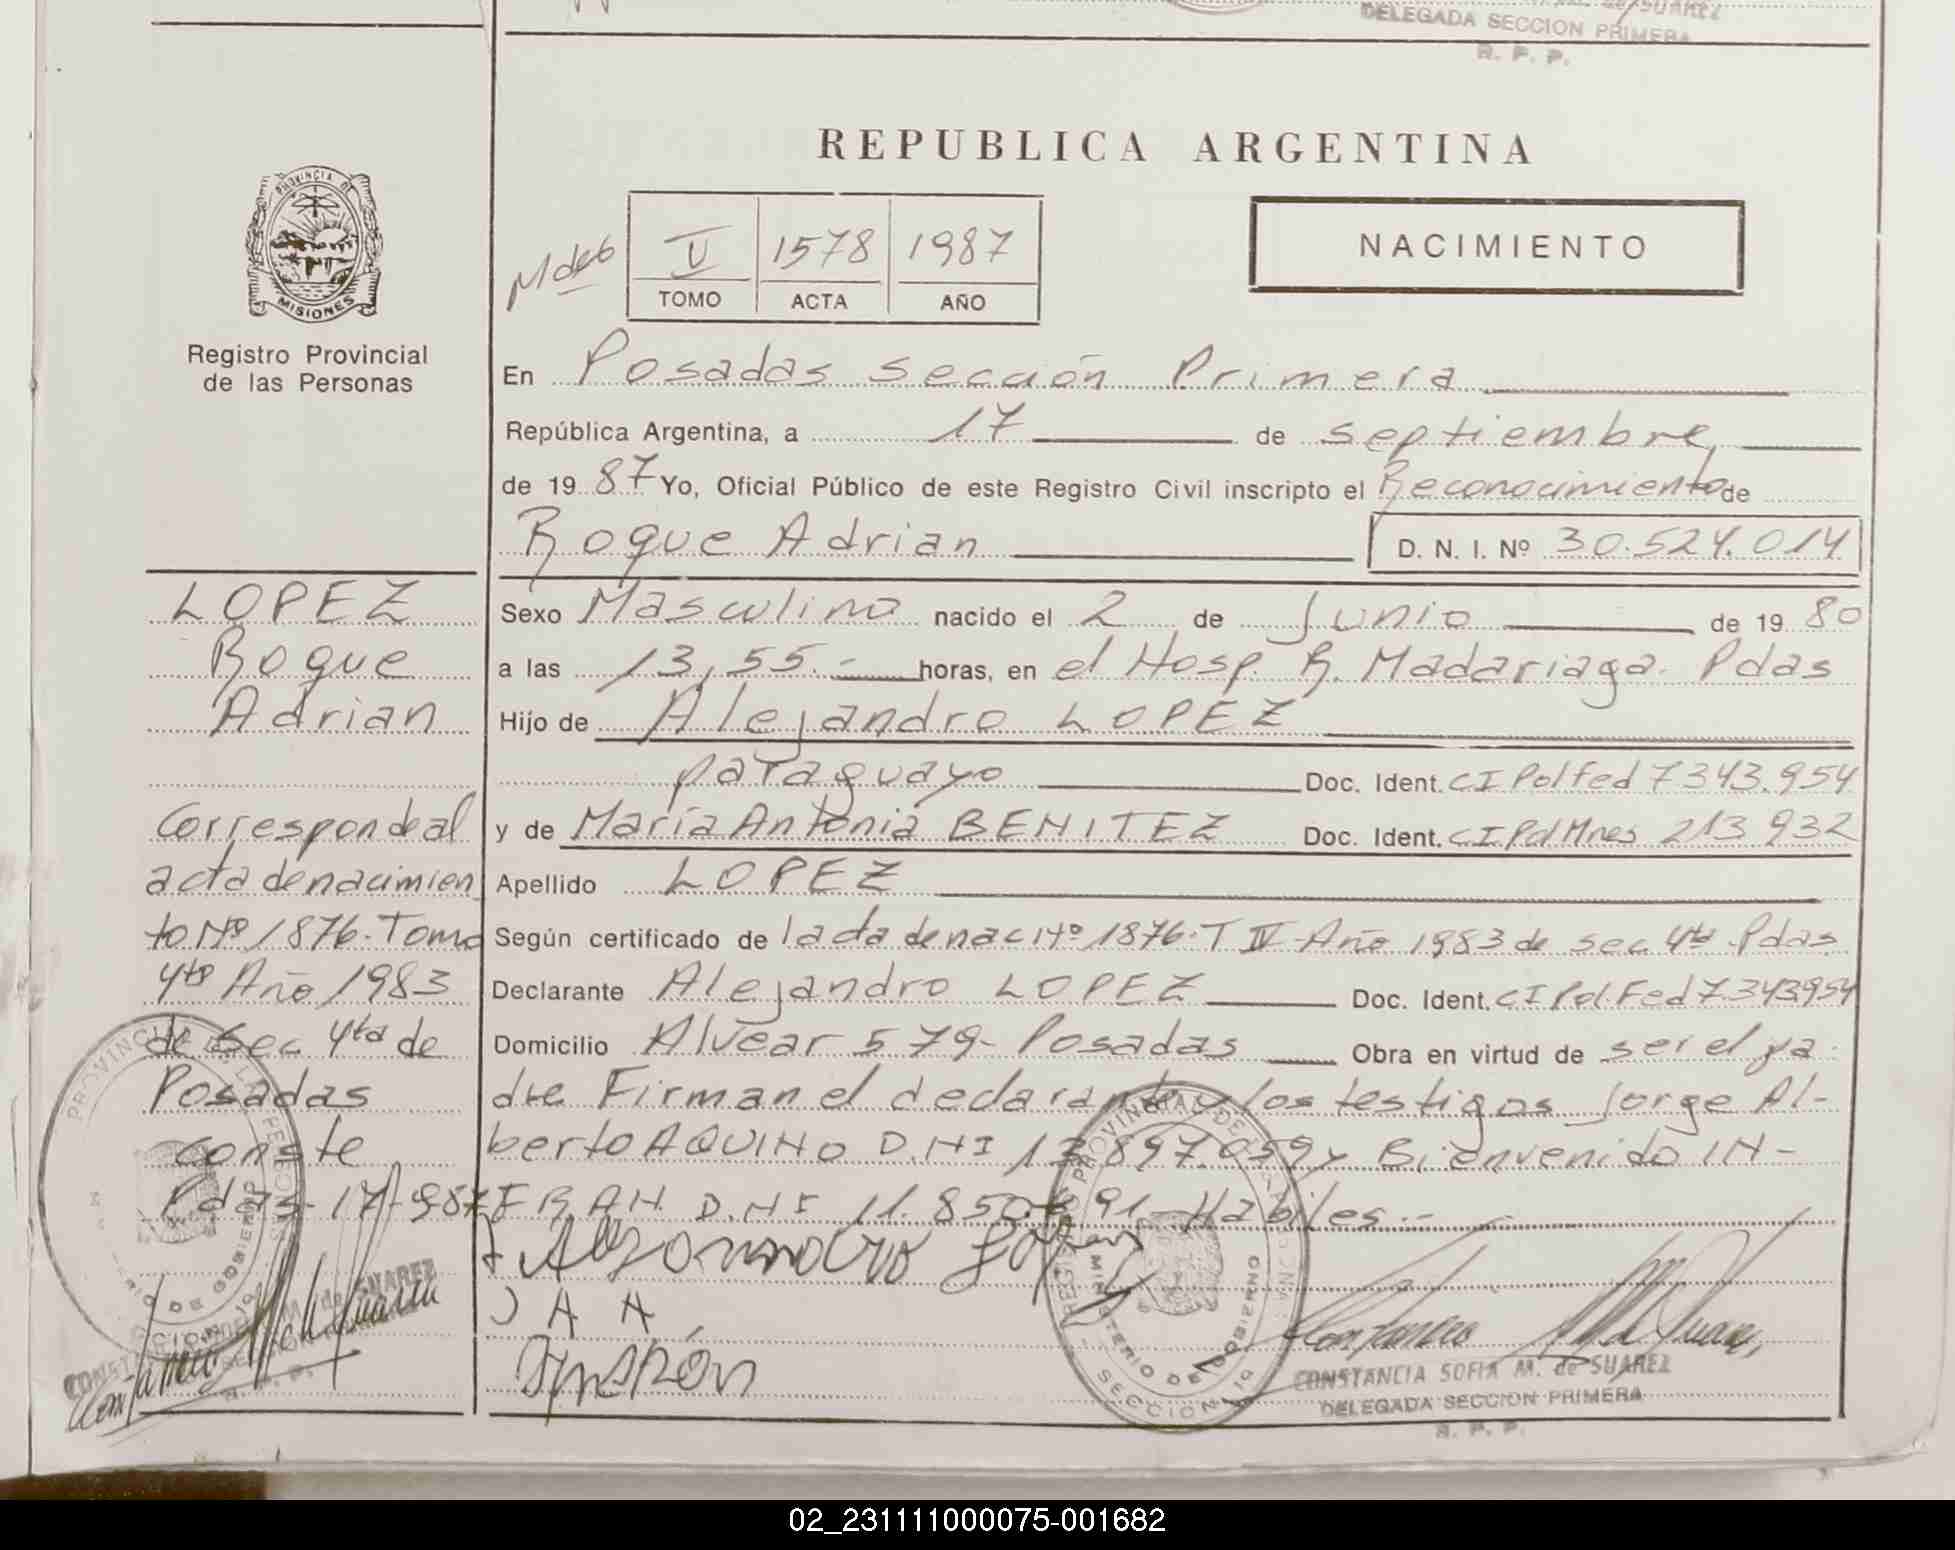 DELEGADA SECCION PRIMERA
R. P. P.
REPUBLICA ARGENTINA
PROVINCIA DE
MISIONES
Registro Provincial
de las Personas
V 1578 1987
TOMO ACTA AÑO
NACIMIENTO
En Posadas sección Primera
República Argentina, a 17 de septiembre
de 1987 Yo, Oficial Público de este Registro Civil inscripto el Reconocimiento de
Roque Adrian D. N. I. Nº 30.524.014
LOPEZ
Roque
Adrian
Correspondeal
acta denacimien
to Nº 1876. Tomo
4to Año 1983
de Sec 4ta de
Posadas
conste
Pdas-17-9-87
Sexo Masculino nacido el 2 de Junio de 1980
a las 13,55.- horas, en el Hosp. R. Madariaga. Pdas
Hijo de Alejandro LOPEZ
paraguayo Doc. Ident. CI Pol Fed 7343.954
y de María Antonia BENITEZ Doc. Ident. CI Pol Mnes 213 932
Apellido LOPEZ
Según certificado de lada de nac Nº 1876. T IV Año 1983 de sec 4ta Pdas
Declarante Alejandro LOPEZ Doc. Ident. CI Pol. Fed 7343954
Domicilio Alvear 579- Posadas Obra en virtud de ser el pa
dre Firman el declarante y los testigos Jorge Al-
berto AQUINO D.NI 13.897.059 y Bienvenido IN-
FRAN D.NI 11.850.891 Habiles.-
J A A
CONSTANCIA SOFIA M. de SUAREZ
DELEGADA SECCION PRIMERA
R. P. P.
02_231111000075-001682